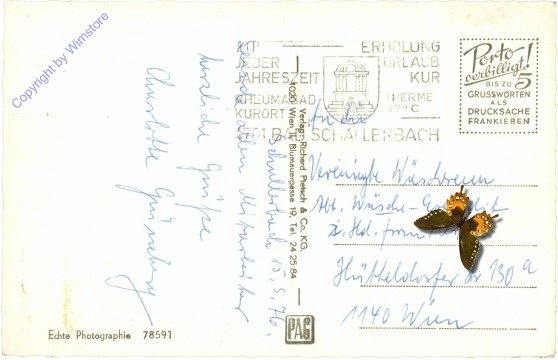 Copyright by Wimstore
ZU JEDER JAHRESZEIT
RHEUMABAD
KURORT
ERHOLUNG
URLAUB
KUR
THERME
37° C
4701 BAD SCHALLERBACH
Porto
verbilligt!
BIS ZU
5
GRUSSWORTEN
ALS
DRUCKSACHE
FRANKIEREN
Schallerbach 15.9.76.
allen Mitarbeiter
herzliche Grüße
Charlotte
Verlag: Richard Pietsch & Co. KG.
1020 Wien II, Blumauergasse 19, Tel. 24 25 84
PAG
An die
Vereinigte Wäschereien
Abt. Wäsche-
z. Hd.
Hütteldorfer Str 130a
1140 Wien
Echte Photographie 78591